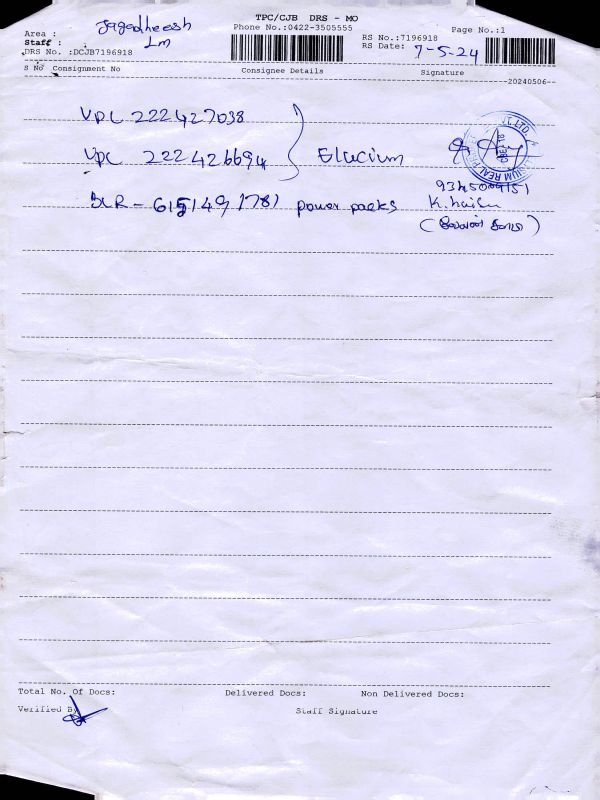 TPC/CJB DRS - MO
Phone No.:0422-3505555
Page No.:1
Area : Jagadheesh
Staff : Lm
DRS No. :DCJB7196918
RS No.:7196918
RS Date: 7-5-24
S No Consignment No Consignee Details Signature
20240506
VPL 222427038
VPL 222426694 Elucium
BLR - 615149178) power packs
9345009151
K.
Total No. Of Docs: Delivered Docs: Non Delivered Docs:
Verified By Staff Signature